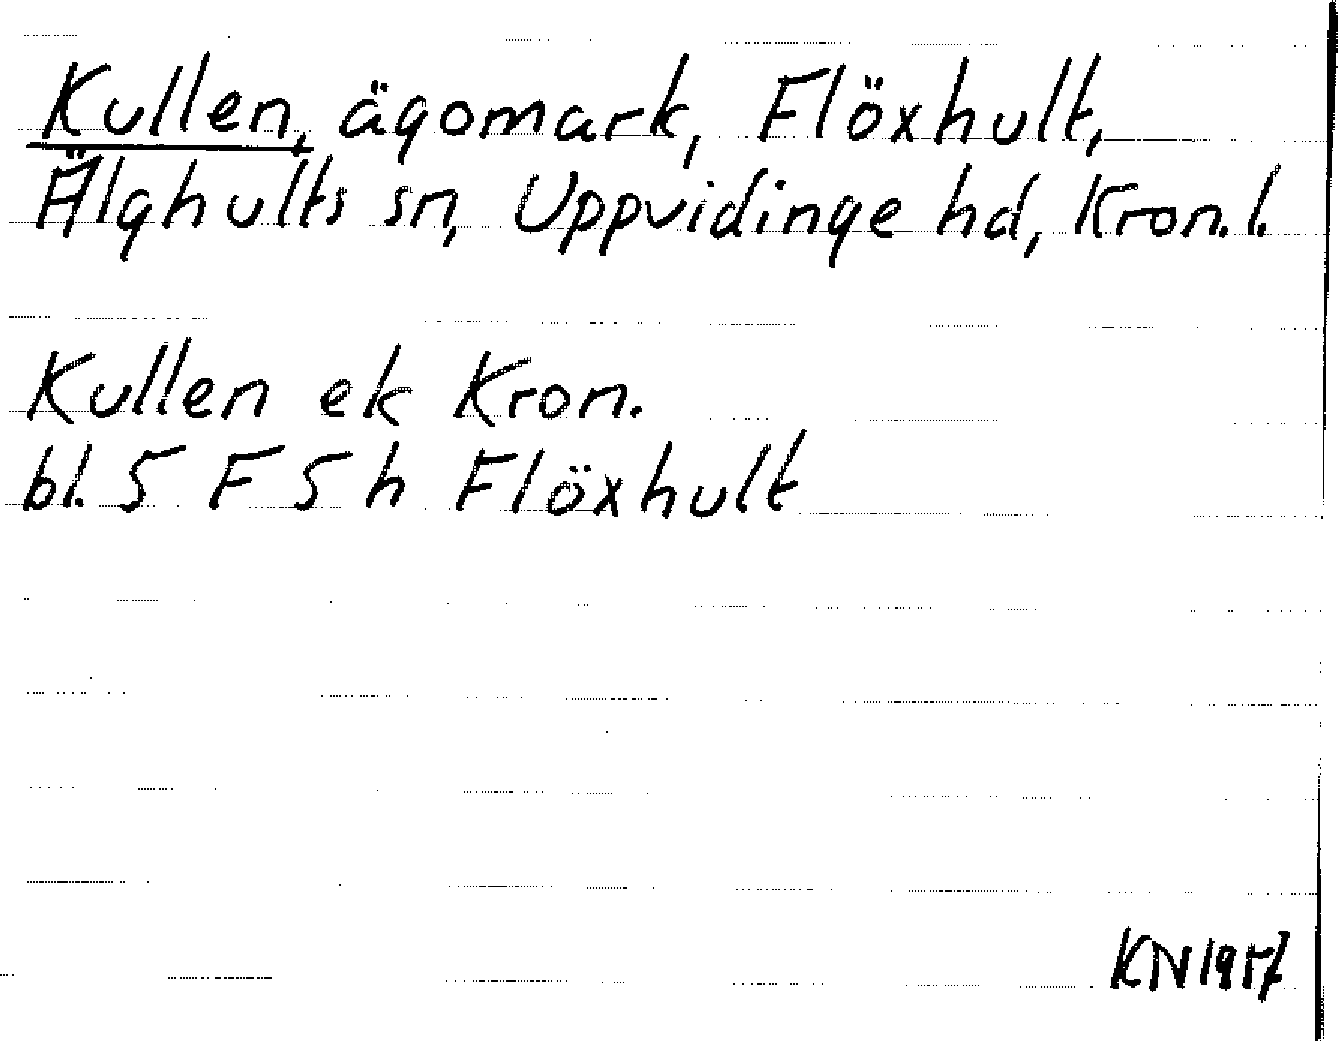 Kullen, ägomark, Flöxhult,
Älghults sn, Uppvidinge hd, Kron. l.
Kullen ek Kron.
bl. 5 F 5 h Flöxhult
KN 1957